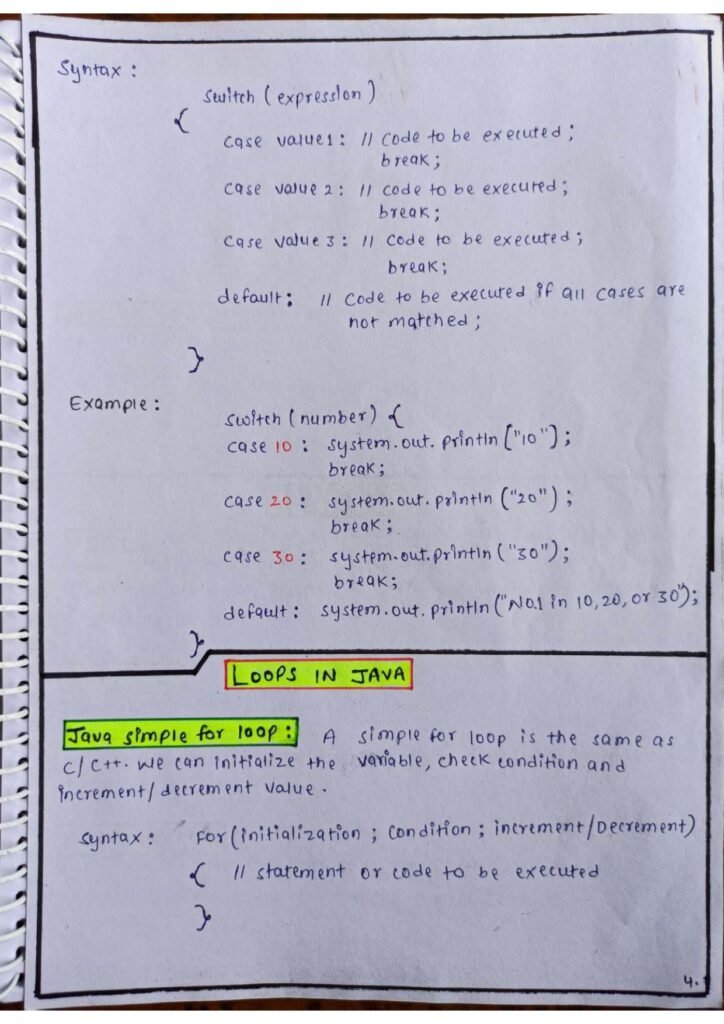 Syntax :
switch (expression)
{
case value1: // code to be executed;
break;
case value 2: // code to be executed;
break;
case value 3: // code to be executed;
break;
default: // code to be executed if all cases are
not matched;
}
Example:
switch (number) {
case 10 : system.out.println ["10"];
break;
case 20 : system.out.println ("20");
break;
case 30 : system.out.println ("30");
break;
default: system.out.println ("No.1 in 10,20, or 30");
}
LOOPS IN JAVA
Java simple for loop: A simple for loop is the same as
C/C++. We can initialize the variable, check condition and
increment/decrement value.
syntax: For(initialization ; condition ; increment/Decrement)
{ // statement or code to be executed
}
4.